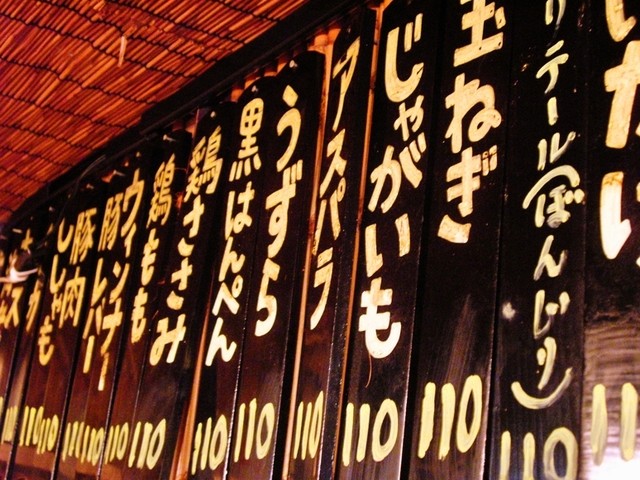 テール(ぼんじり) 110
玉ねぎ 110
じゃがいも 110
アスパラ 110
うずら 110
黒はんぺん 110
鶏ささみ 110
鶏もも 110
ウィンナー 110
豚レバー 110
豚肉 110
ししゃも 110